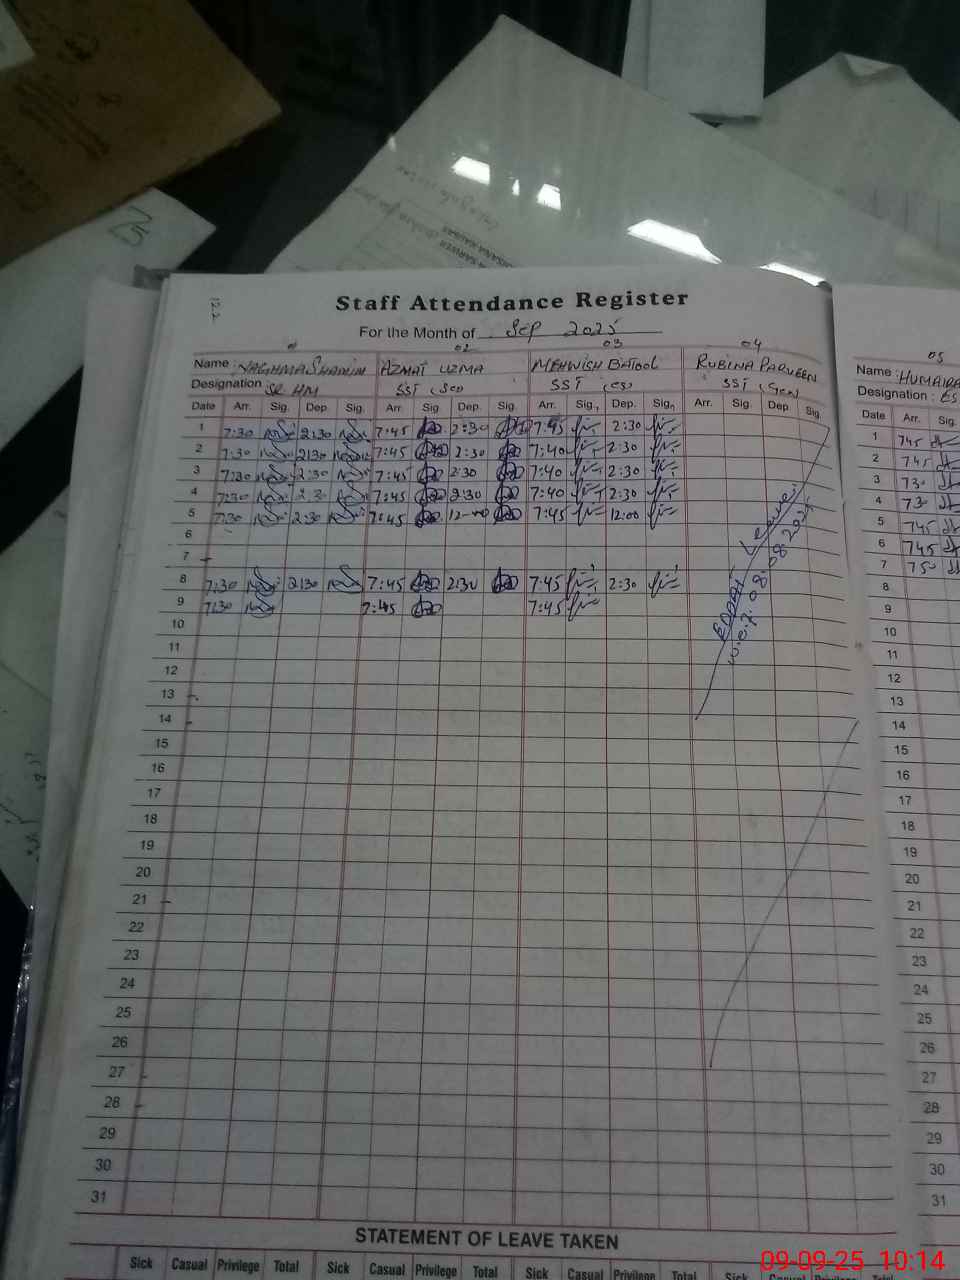 Staff Attendance Register
For the Month of Sep 2025
02 03 04 05
Name : NAGHMA SHAMIM AZMAT UZMA MEHWISH BATOOL RUBINA PARVEEN Name : HUMAIRA
Designation SR HM SST (Sci) SST (CS) SST (Gen) Designation : ES
Date Arr. Sig. Dep. Sig. Arr. Sig. Dep. Sig. Arr. Sig. Dep. Sig. Arr. Sig. Dep Sig. Date Arr. Sig.
1 7:30 2:30 7:45 2:30 7:45 2:30 1 745
2 7:30 2:30 7:45 2:30 7:40 2:30 2 745
3 7:30 2:30 7:45 2:30 7:40 2:30 3 730
4 7:30 2:30 7:45 2:30 7:40 2:30 4 730
5 7:30 2:30 7:45 12-00 7:45 12:00 5 745
6 6 745
7 7 750
8 7:30 2:30 7:45 2:30 7:45 2:30 8
9 7:30 7:45 7:45 9
10 10
11 11
12 12
13 13
14 14
15 15
16 16
17 17
18 18
19 19
20 20
21 21
22 22
23 23
24 24
25 25
26 26
27 27
28 28
29 29
30 30
31 31
Leave
w.e.f. 08.08.2025
STATEMENT OF LEAVE TAKEN
Sick Casual Privilege Total Sick Casual Privilege Total Sick Casual Privilege Total Sick Casual
09-09-25 10:14